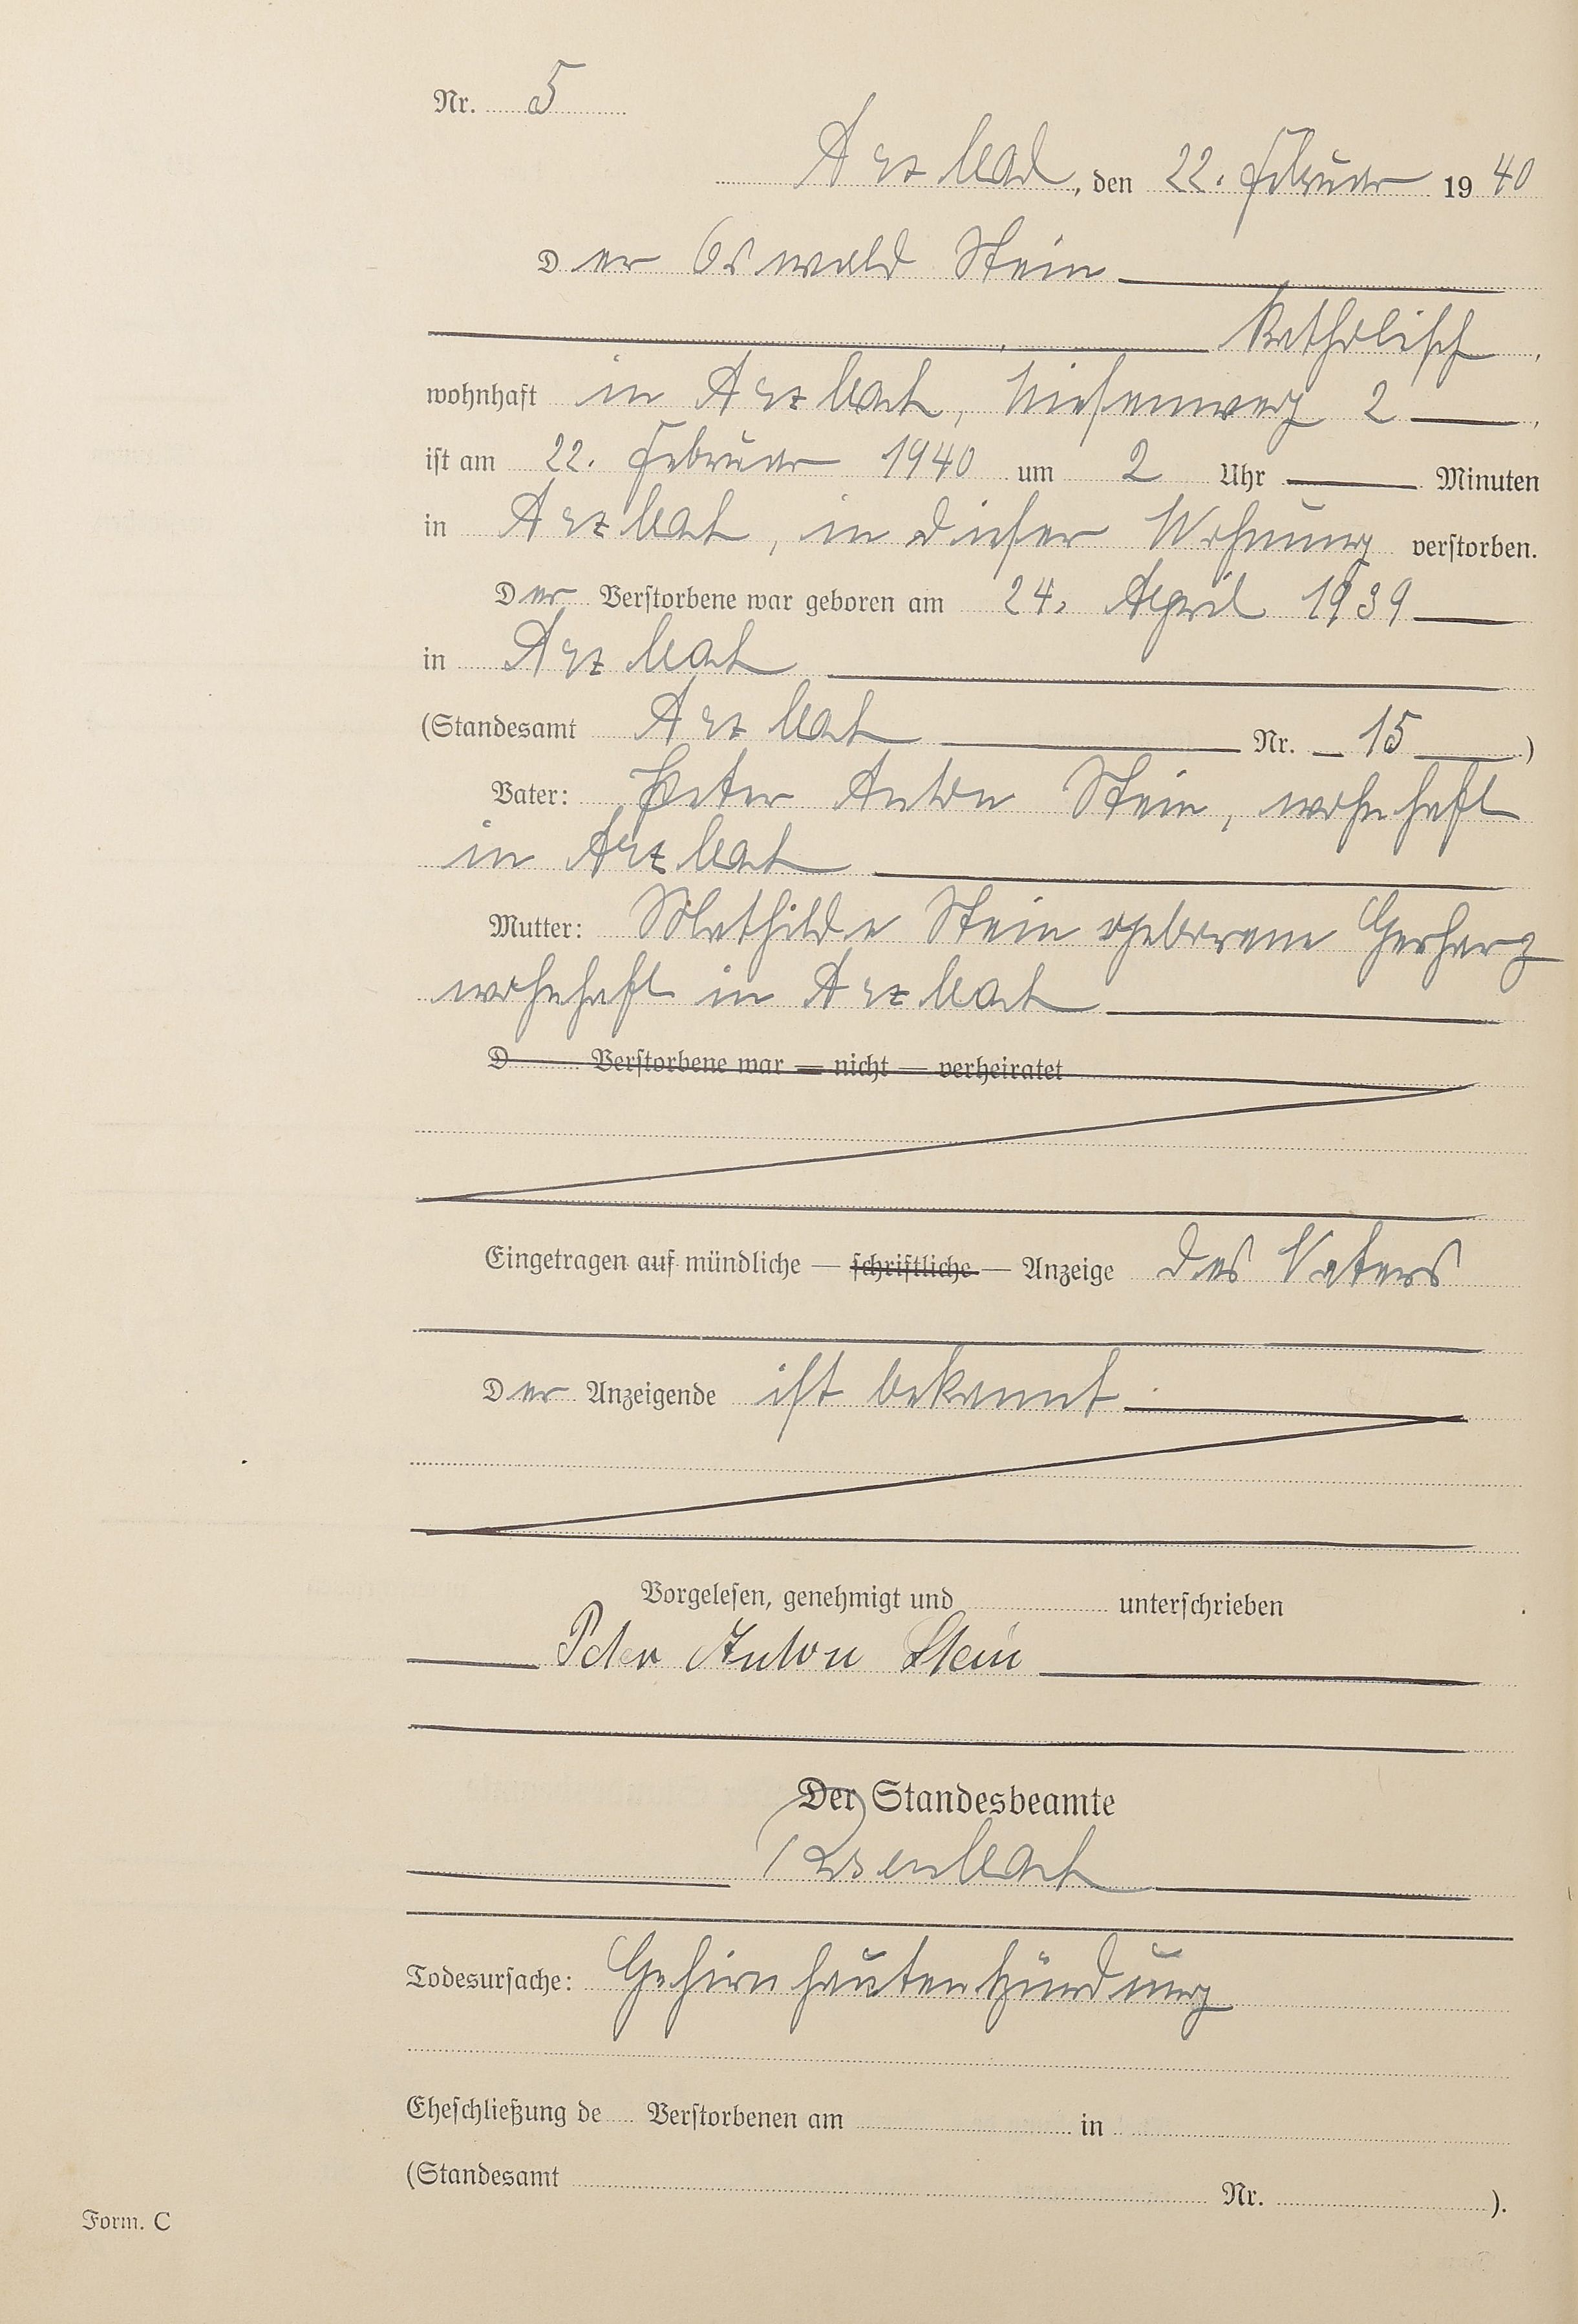 Nr. 5
Arzbach, den 22. Februar 1940
Der Oswald Stein
katholisch,
wohnhaft in Arzbach, Wiesenweg 2,
ist am 22. Februar 1940 um 2 Uhr Minuten
in Arzbach, in dieser Wohnung verstorben.
Der Verstorbene war geboren am 24. April 1939
in Arzbach
(Standesamt Arzbach Nr. 15)
Vater: Peter Anton Stein, wohnhaft
in Arzbach
Mutter: Mathilde Stein geborene Gerharz
wohnhaft in Arzbach
D Verstorbene war — nicht — verheiratet
Eingetragen auf mündliche — schriftliche — Anzeige des Vaters
Der Anzeigende ist bekannt.
Vorgelesen, genehmigt und unterschrieben
Peter Anton Stein
Der Standesbeamte
Todesursache: Gehirnhautentzündung
Eheschließung de Verstorbenen am in
(Standesamt Nr. ).
Form. C